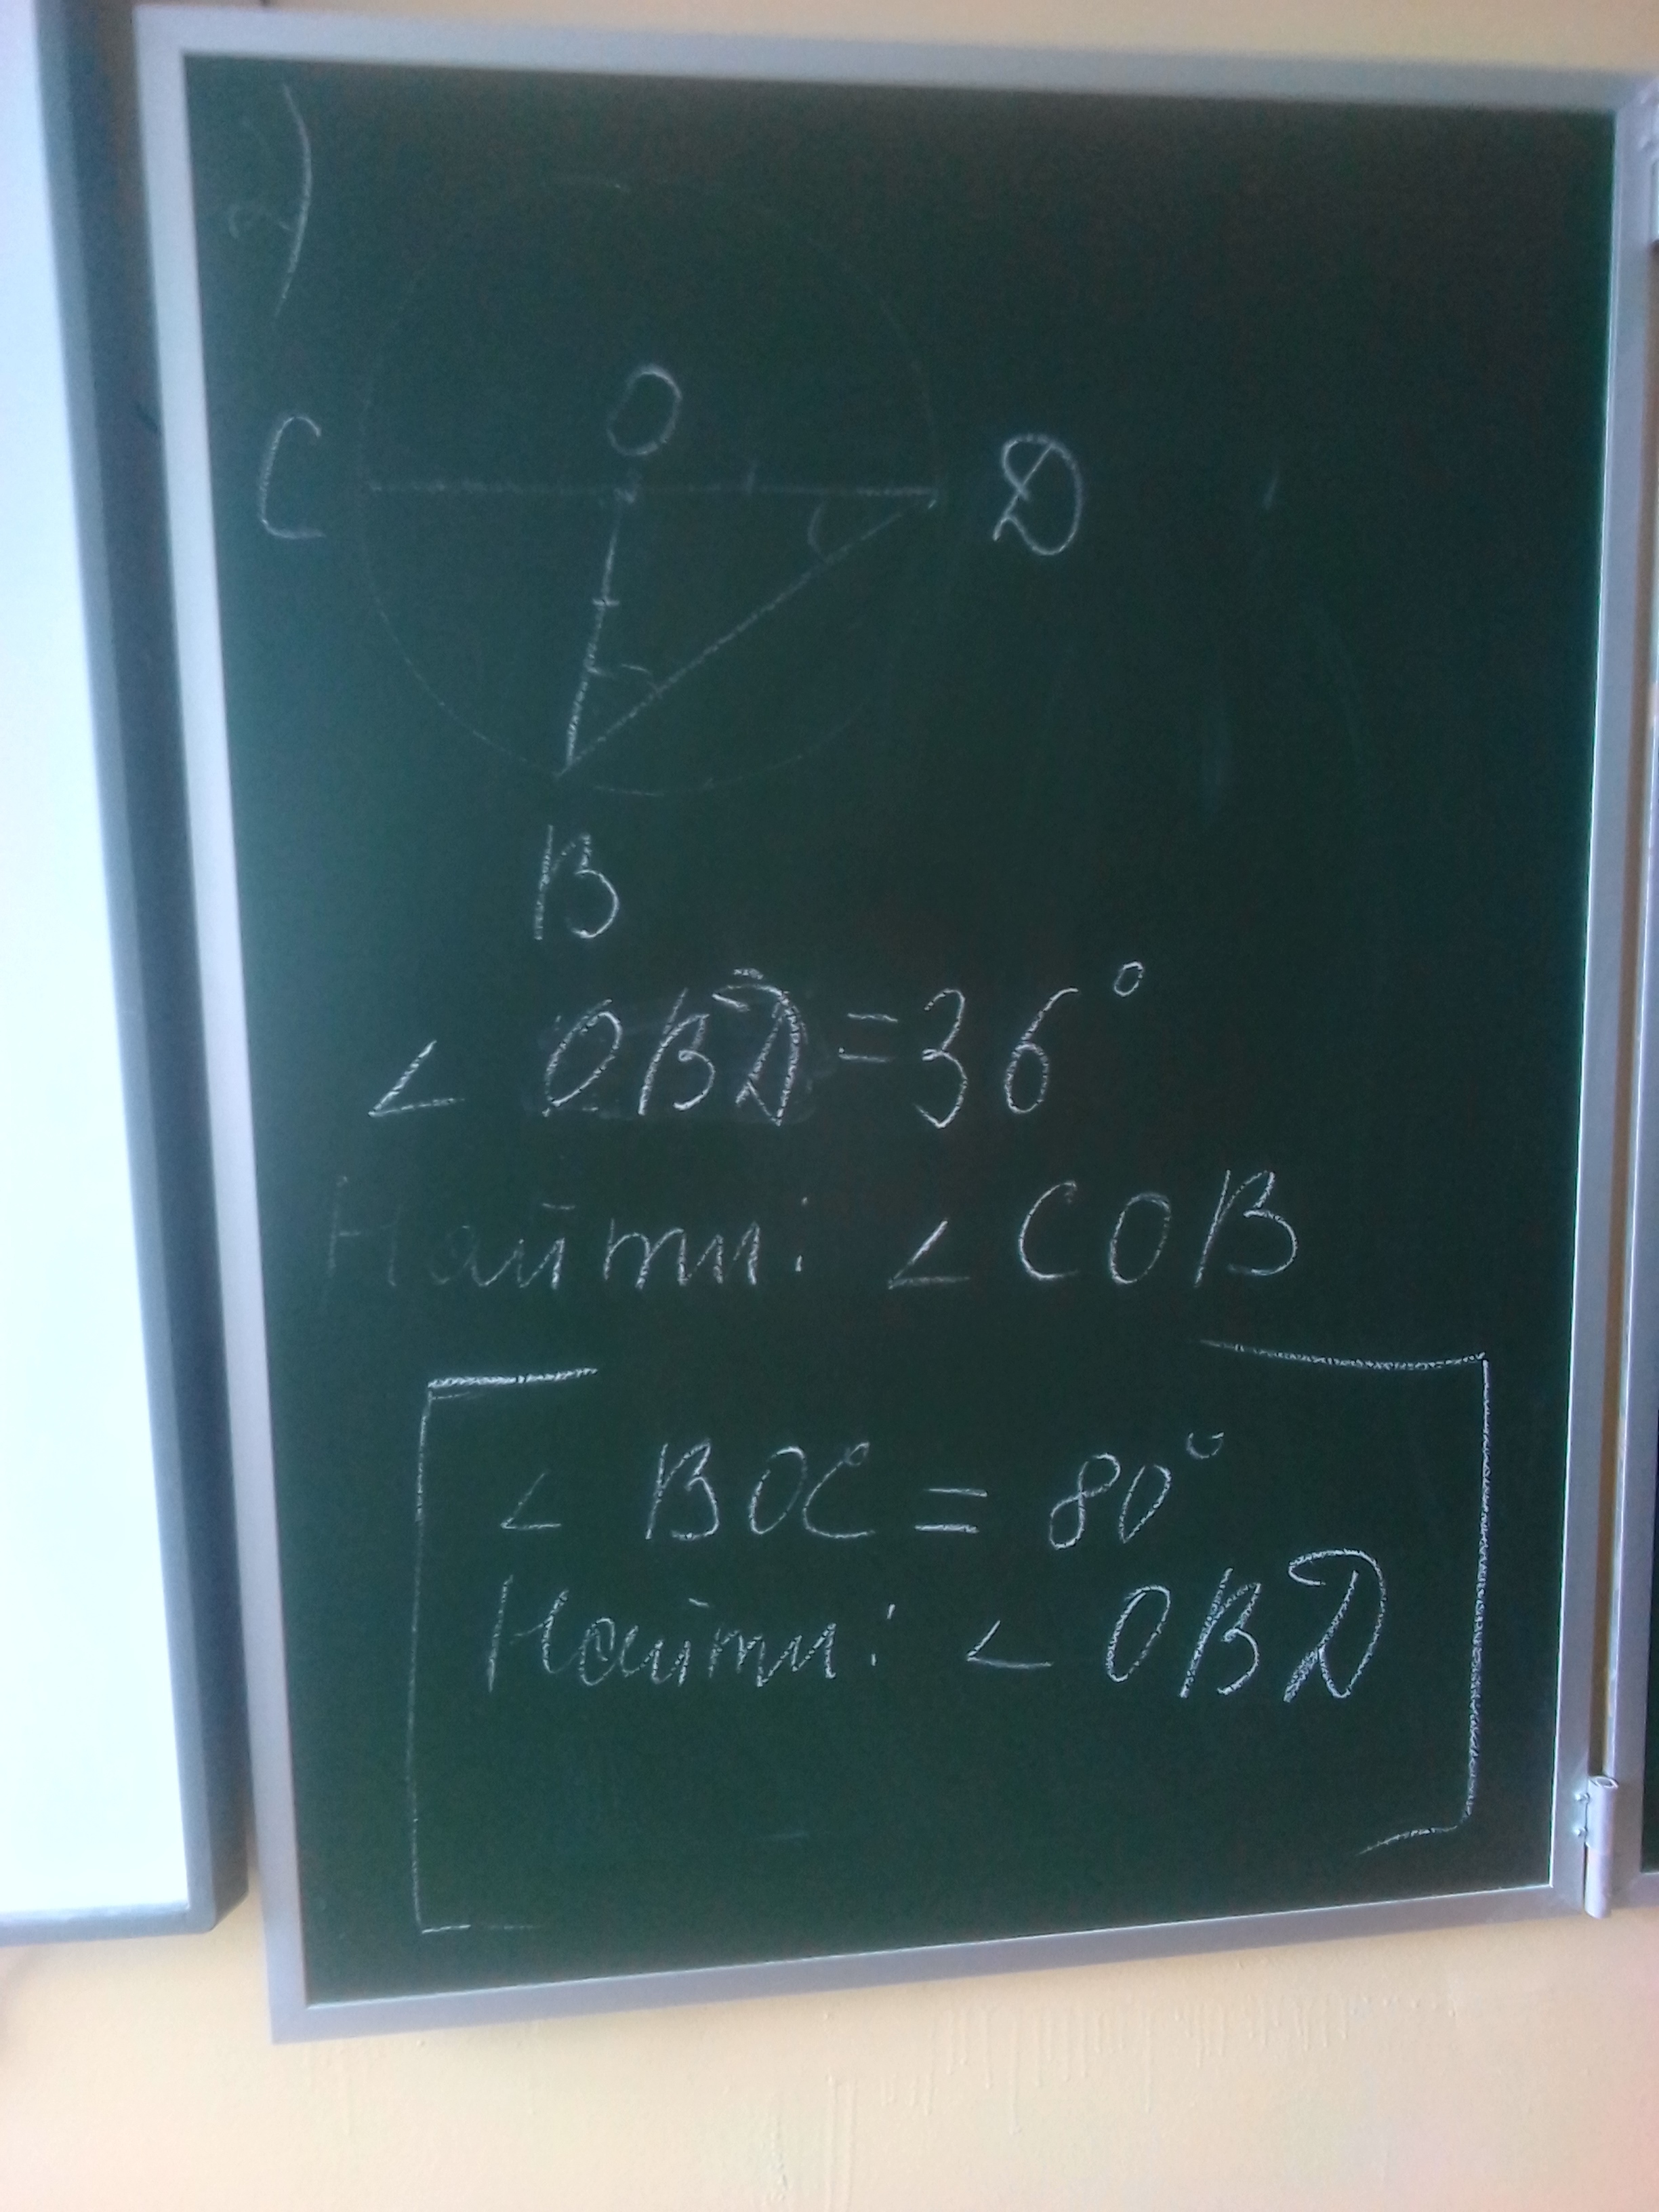 2)
O
C D
B
∠ OBD = 36°
Найти: ∠ COB
∠ BOC = 80°
Найти: ∠ OBD